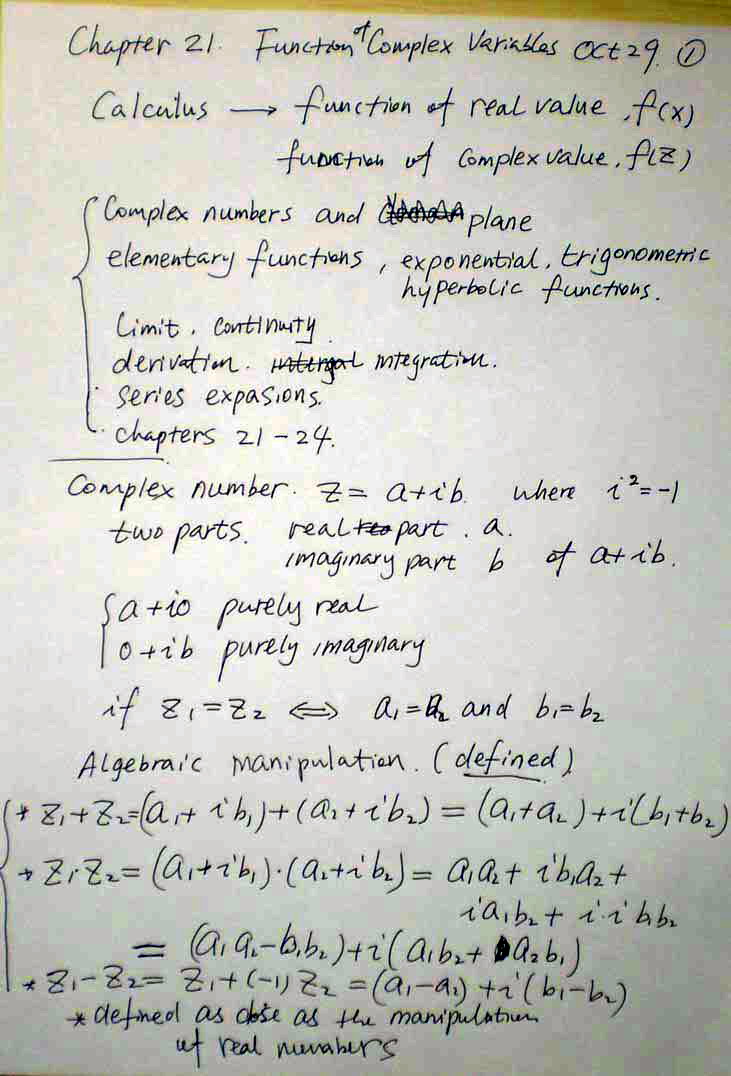 Chapter 21. Function of Complex Variables Oct 29. ①
Calculus → function of real value, f(x)
function of complex value, f(z)
Complex numbers and plane
elementary functions, exponential, trigonometric
hyperbolic functions.
Limit. continuity.
derivation. integration.
series expasions.
chapters 21-24.
Complex number. z = a+ib. where i²=-1
two parts. real part. a.
imaginary part b of a+ib.
a+i0 purely real
0+ib purely imaginary
if z₁=z₂ ⟺ a₁=a₂ and b₁=b₂
Algebraic manipulation. (defined)
* z₁+z₂=(a₁+ib₁)+(a₂+ib₂) = (a₁+a₂)+i(b₁+b₂)
* z₁·z₂=(a₁+ib₁)·(a₂+ib₂)= a₁a₂+ib₁a₂+
ia₁b₂+i·ib₁b₂
= (a₁a₂-b₁b₂)+i(a₁b₂+a₂b₁)
* z₁-z₂= z₁+(-1)z₂ =(a₁-a₂)+i(b₁-b₂)
* defined as close as the manipulation
of real numbers